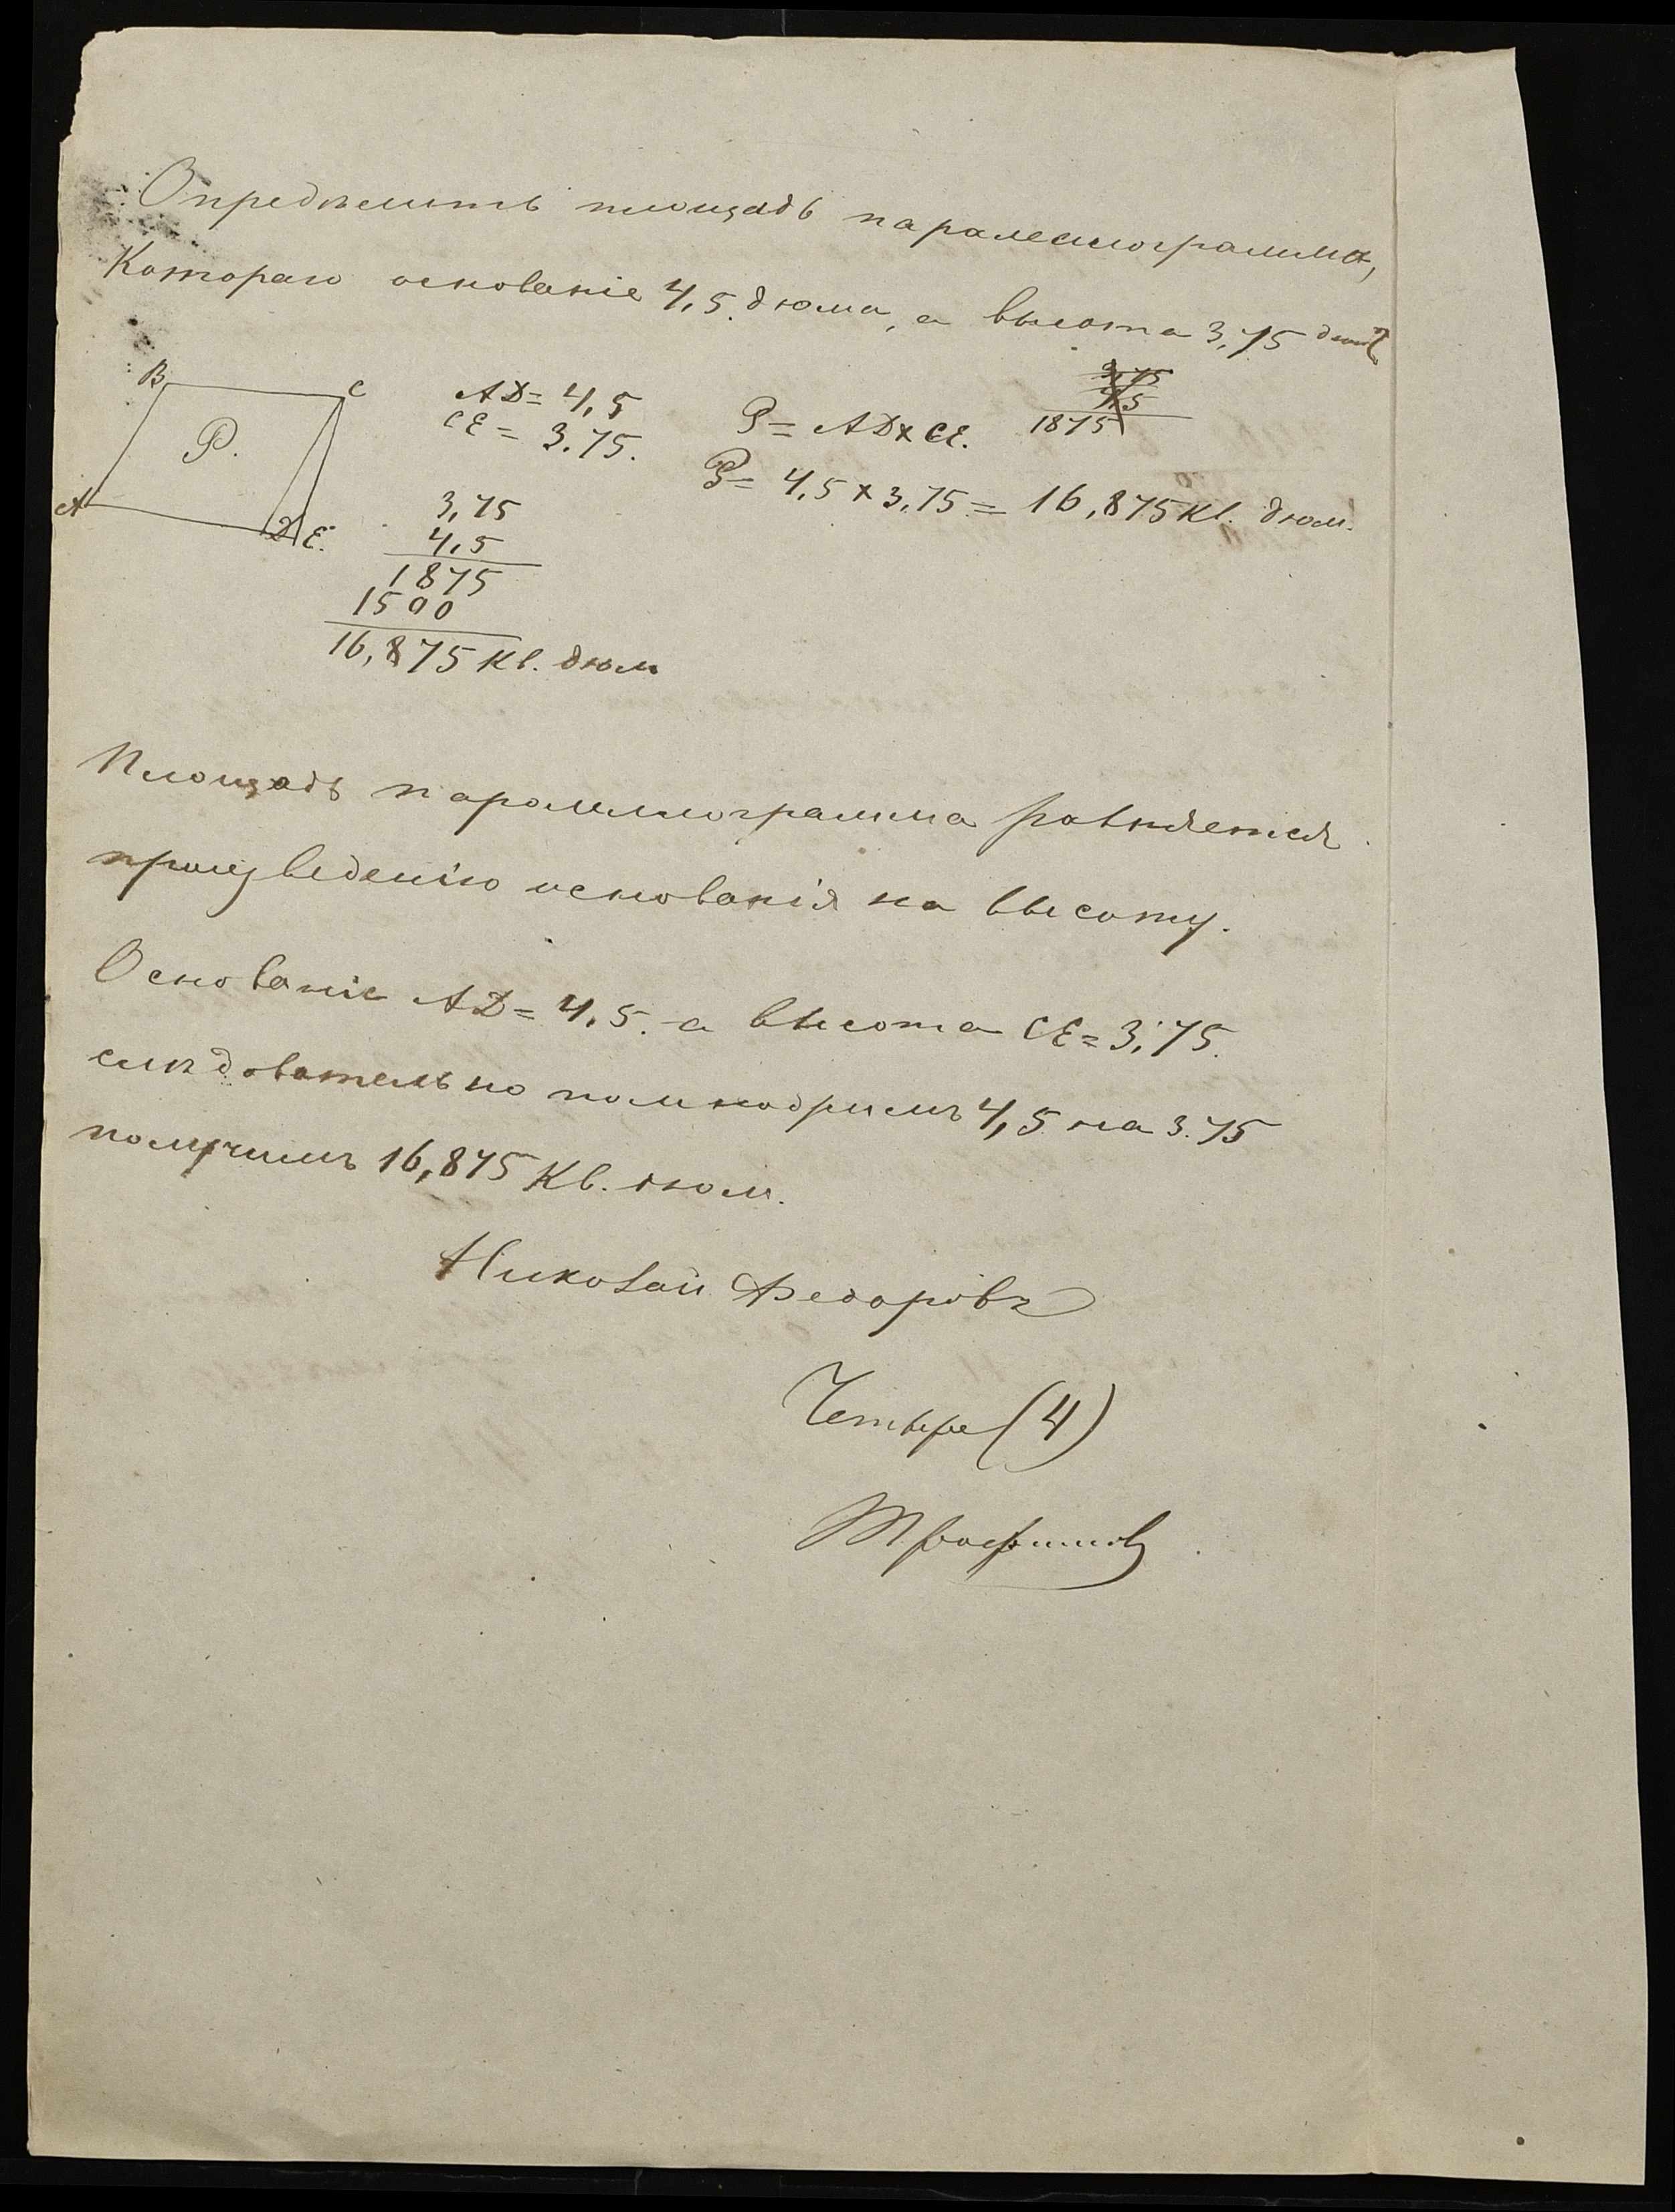 Опредѣлить площадь паралеллограмма,
Котораго основаніе 4,5. дюма, а высота 3,75 дюм.
B C
P.
A D E.
AD = 4,5
CE = 3.75.
P = AD x CE.
3,75
4,5
1875
P = 4,5 x 3,75 = 16,875 Кв. дюм.
3,75
4,5
1875
1500
16,875 Кв. дюм
Площадь параллограмма равняется
произведенію основанія на высоту.
Основаніе AD = 4,5. а высота CE = 3,75.
слѣдовательно помножимъ 4,5 на 3.75
получимъ 16,875 Кв. дюм.
Николай Федоровъ
Четыре (4)
Трофимовъ